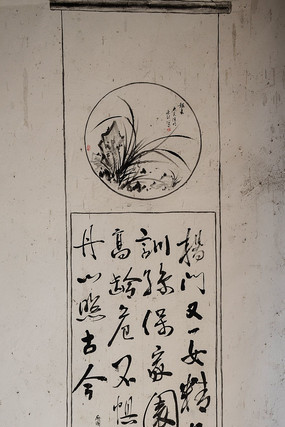 楊门又一女精
訓孫保家園
高龄危不惧
丹心照古今